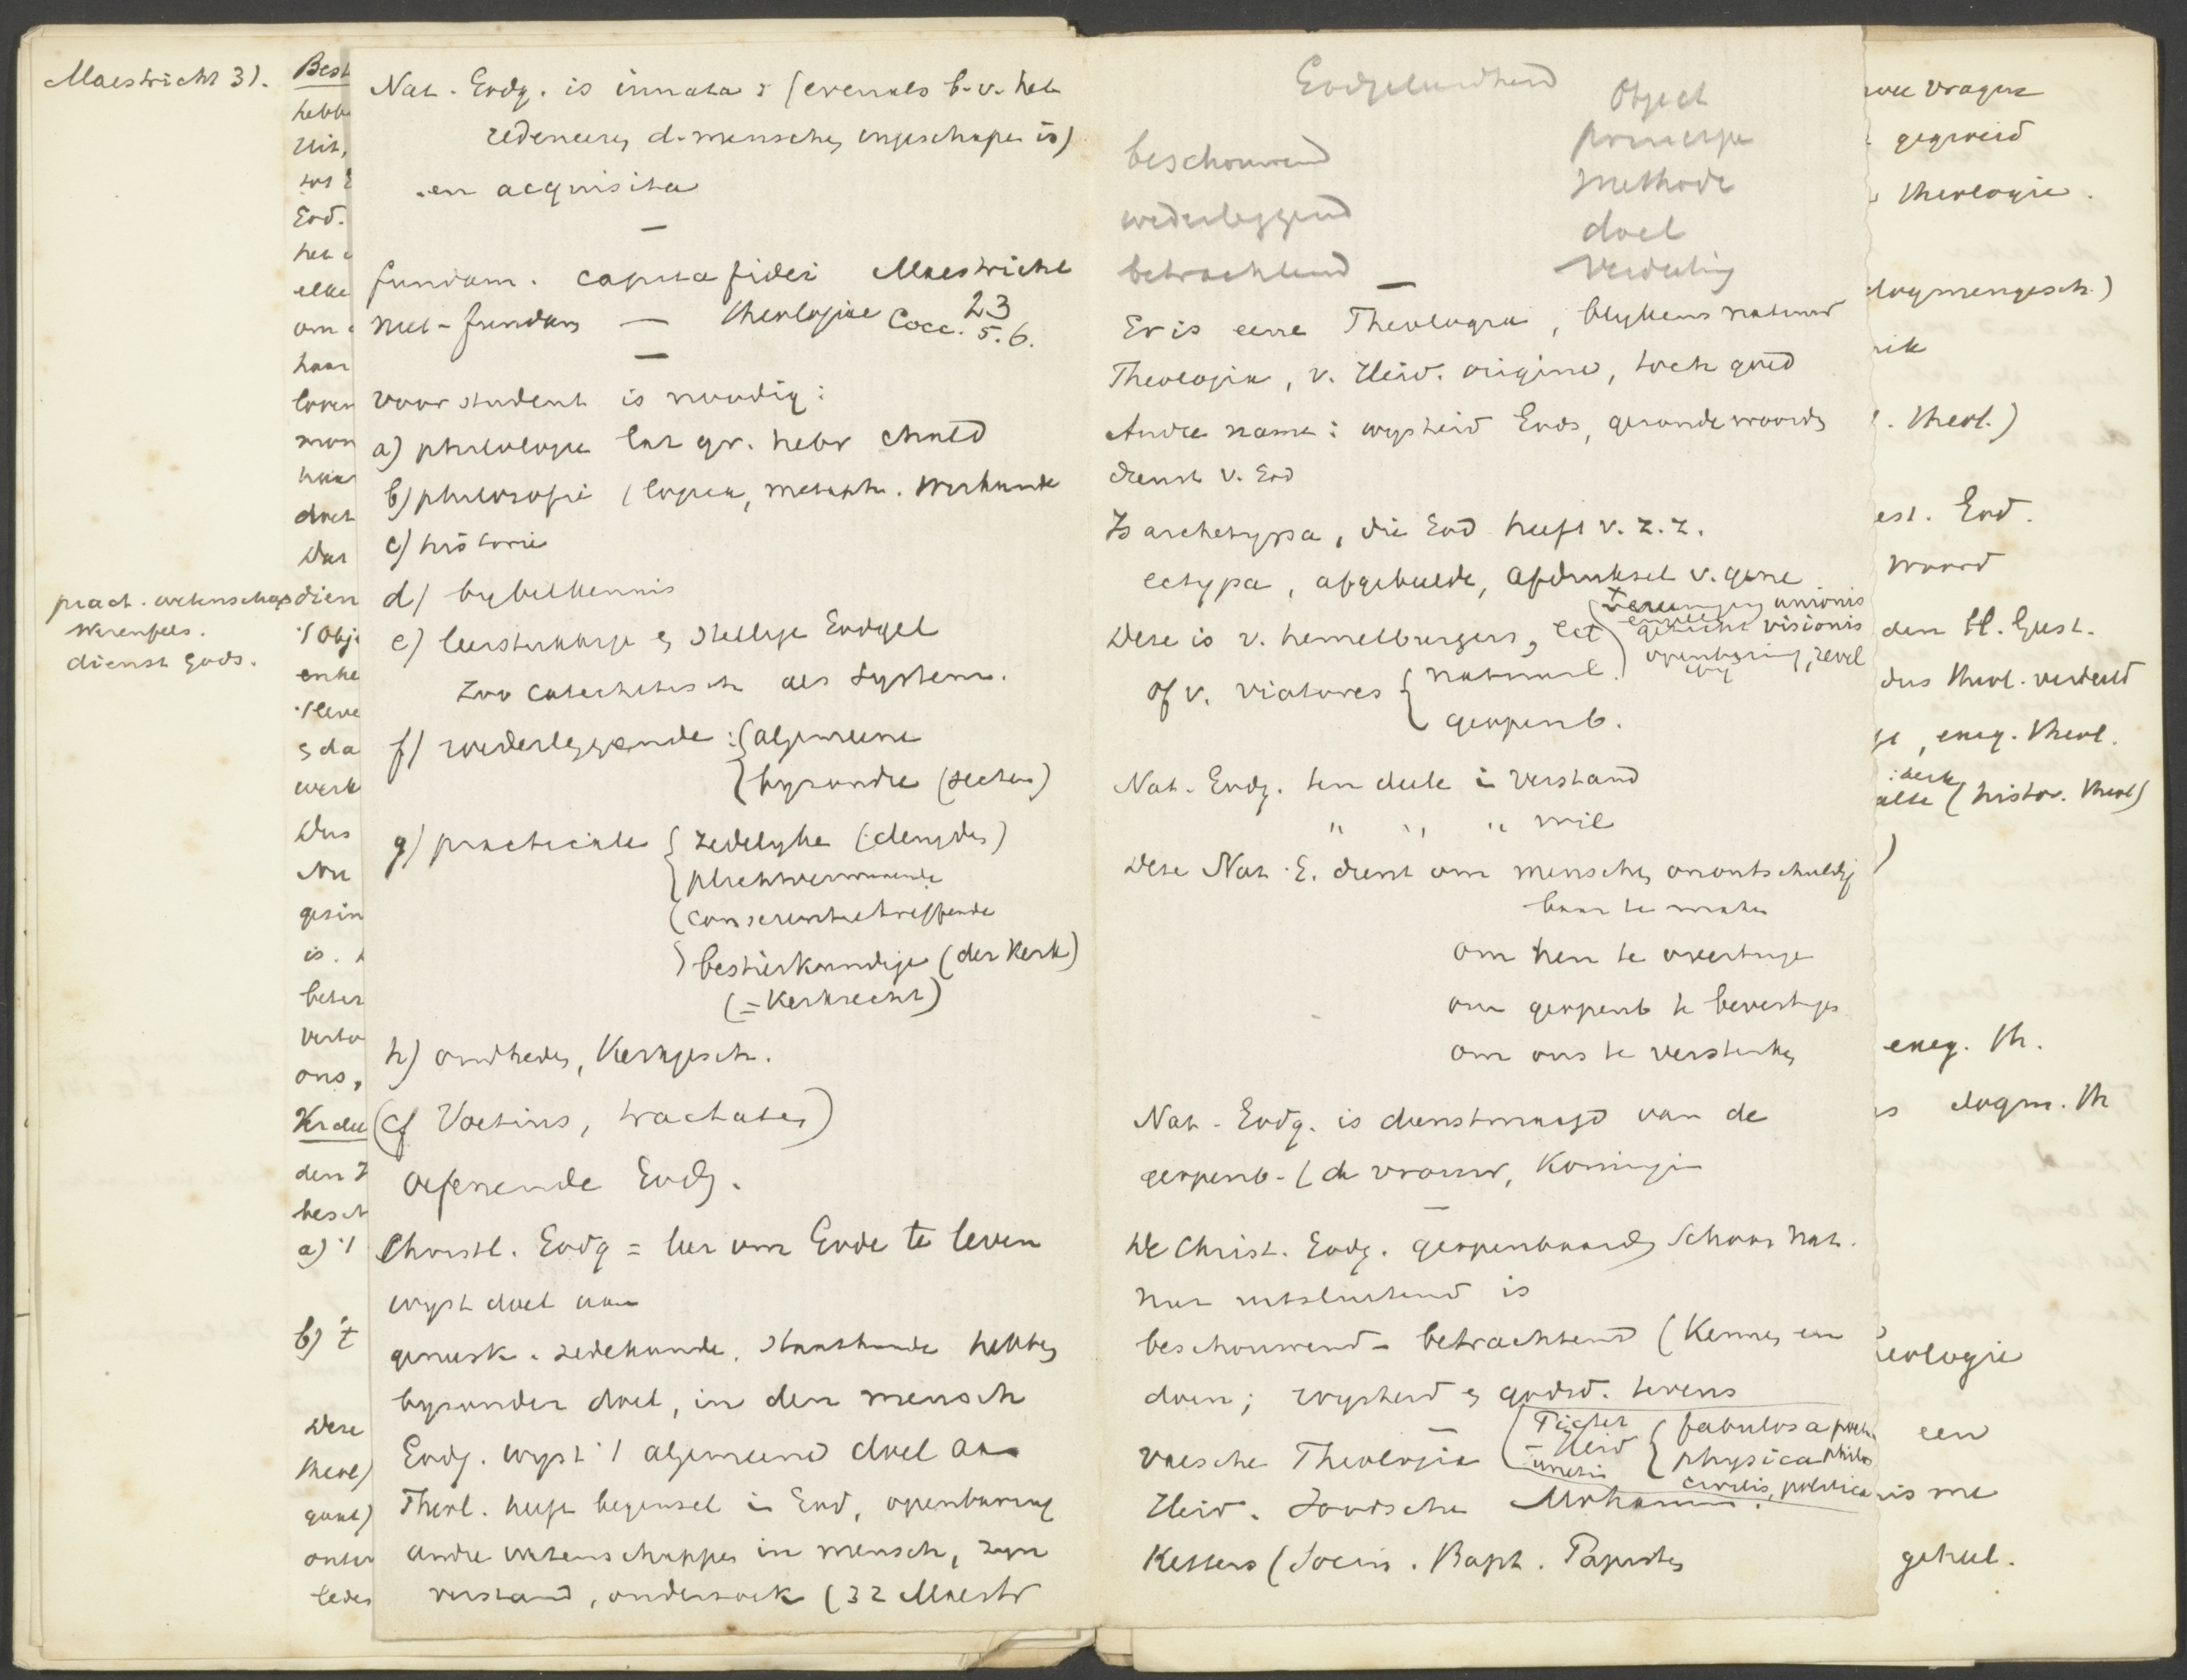 Maestricht 31.
pract. wetenschap
Werenfels.
dienst Gods.
Best
hebb
Uit,
tot
God.
het
elke
om
haar
loven
mon
haar
doet
Dat
dien
't Obj
enke
't leve
da
werk
Dus
Nu
gesin
is.
beter
verto
ons,
Verdee
den
besch
a) 't
b) 't
Deze
theol)
onder
ledes
Nat. Godg. is innata : (evenals b.v. het
redeneeren d. menschen ingeschapen is)
en acquisita
—
fundam. capita fidei Maestricht
niet-fundam — theologiae 23
Cocc. 5.6.
—
Voor student is noodig:
a) philologie lat gr. hebr chald
b) philosofie (logica, metaph. Wiskunde
c) historie
d) bybelkennis
e) leerstukkige en stellige Godgel
zoo catechetisch als System.
f) wederleggende : { algemeene
{ byzondre (secten)
g) practicale { zedelyke (deugden)
{ plichtvermanende
(conscientiebetreffende
bestierkundige (der Kerk)
(= Kerkrecht)
h) oudheden, Kerkgesch.
(cf Voetius, tractaten)
Oefenende Godg.
Christl. Godg = leer om Gode te leven
wyst doel aan
geneesk. zedekunde. Staatkunde hebben
byzonder doel, in den mensch
Godg. wyst 't algemeend doel aan
Theol. heeft beginsel in God, openbaring
andre wetenschappen in mensch, zyn
verstand, onderzoek (32 Maestr
Godgeleerdheid
Object
principe
beschouwend
Methode
wederleggend
doel
betrachtend
Verdeeling
—
Er is eene Theologia, blykens natuur
Theologia, v. Heid. origine, toch goed
Andre namen: wysheid Gods, gezonde woorden
dienst v. God
Is archetypa, die God heeft v. z. z.
ectypa, afgebeelde, afdruksel v. gene
Deze is v. hemelburgers,
unionis
visionis
openbaring, revel
of v. viatores { natuurl.
{ geopenb.
Nat. Godg. ten deele in verstand
" " " wil
Deze Nat. G. dient om menschen onontschuldig
baar te maken
om hen te overtuigen
om geopenb te bevestigen
om ons te versterken
Nat. Godg. is dienstmaagd van de
geopenb. (de vrouw, Koningin
—
De Christ. Godg. geopenbaarde, schoon nat.
niet uitsluitend is
beschouwend - betrachtend (Kennen en
doen; wysheid en godsd. tevens
—
valsche Theologie
Heid { fabulosa poet.
{ physica philos
civilis, politica
Heid. Joodsche Moham.
Ketters (Socin. Bapt. Papisten
vragen
theologie.
theol.)
God.
woord
den H. Geest.
dus theol. verdeeld
exeg. theol.
(histor. theol)
exeg. th.
dogm. th
eologie
een
is me
geheel.